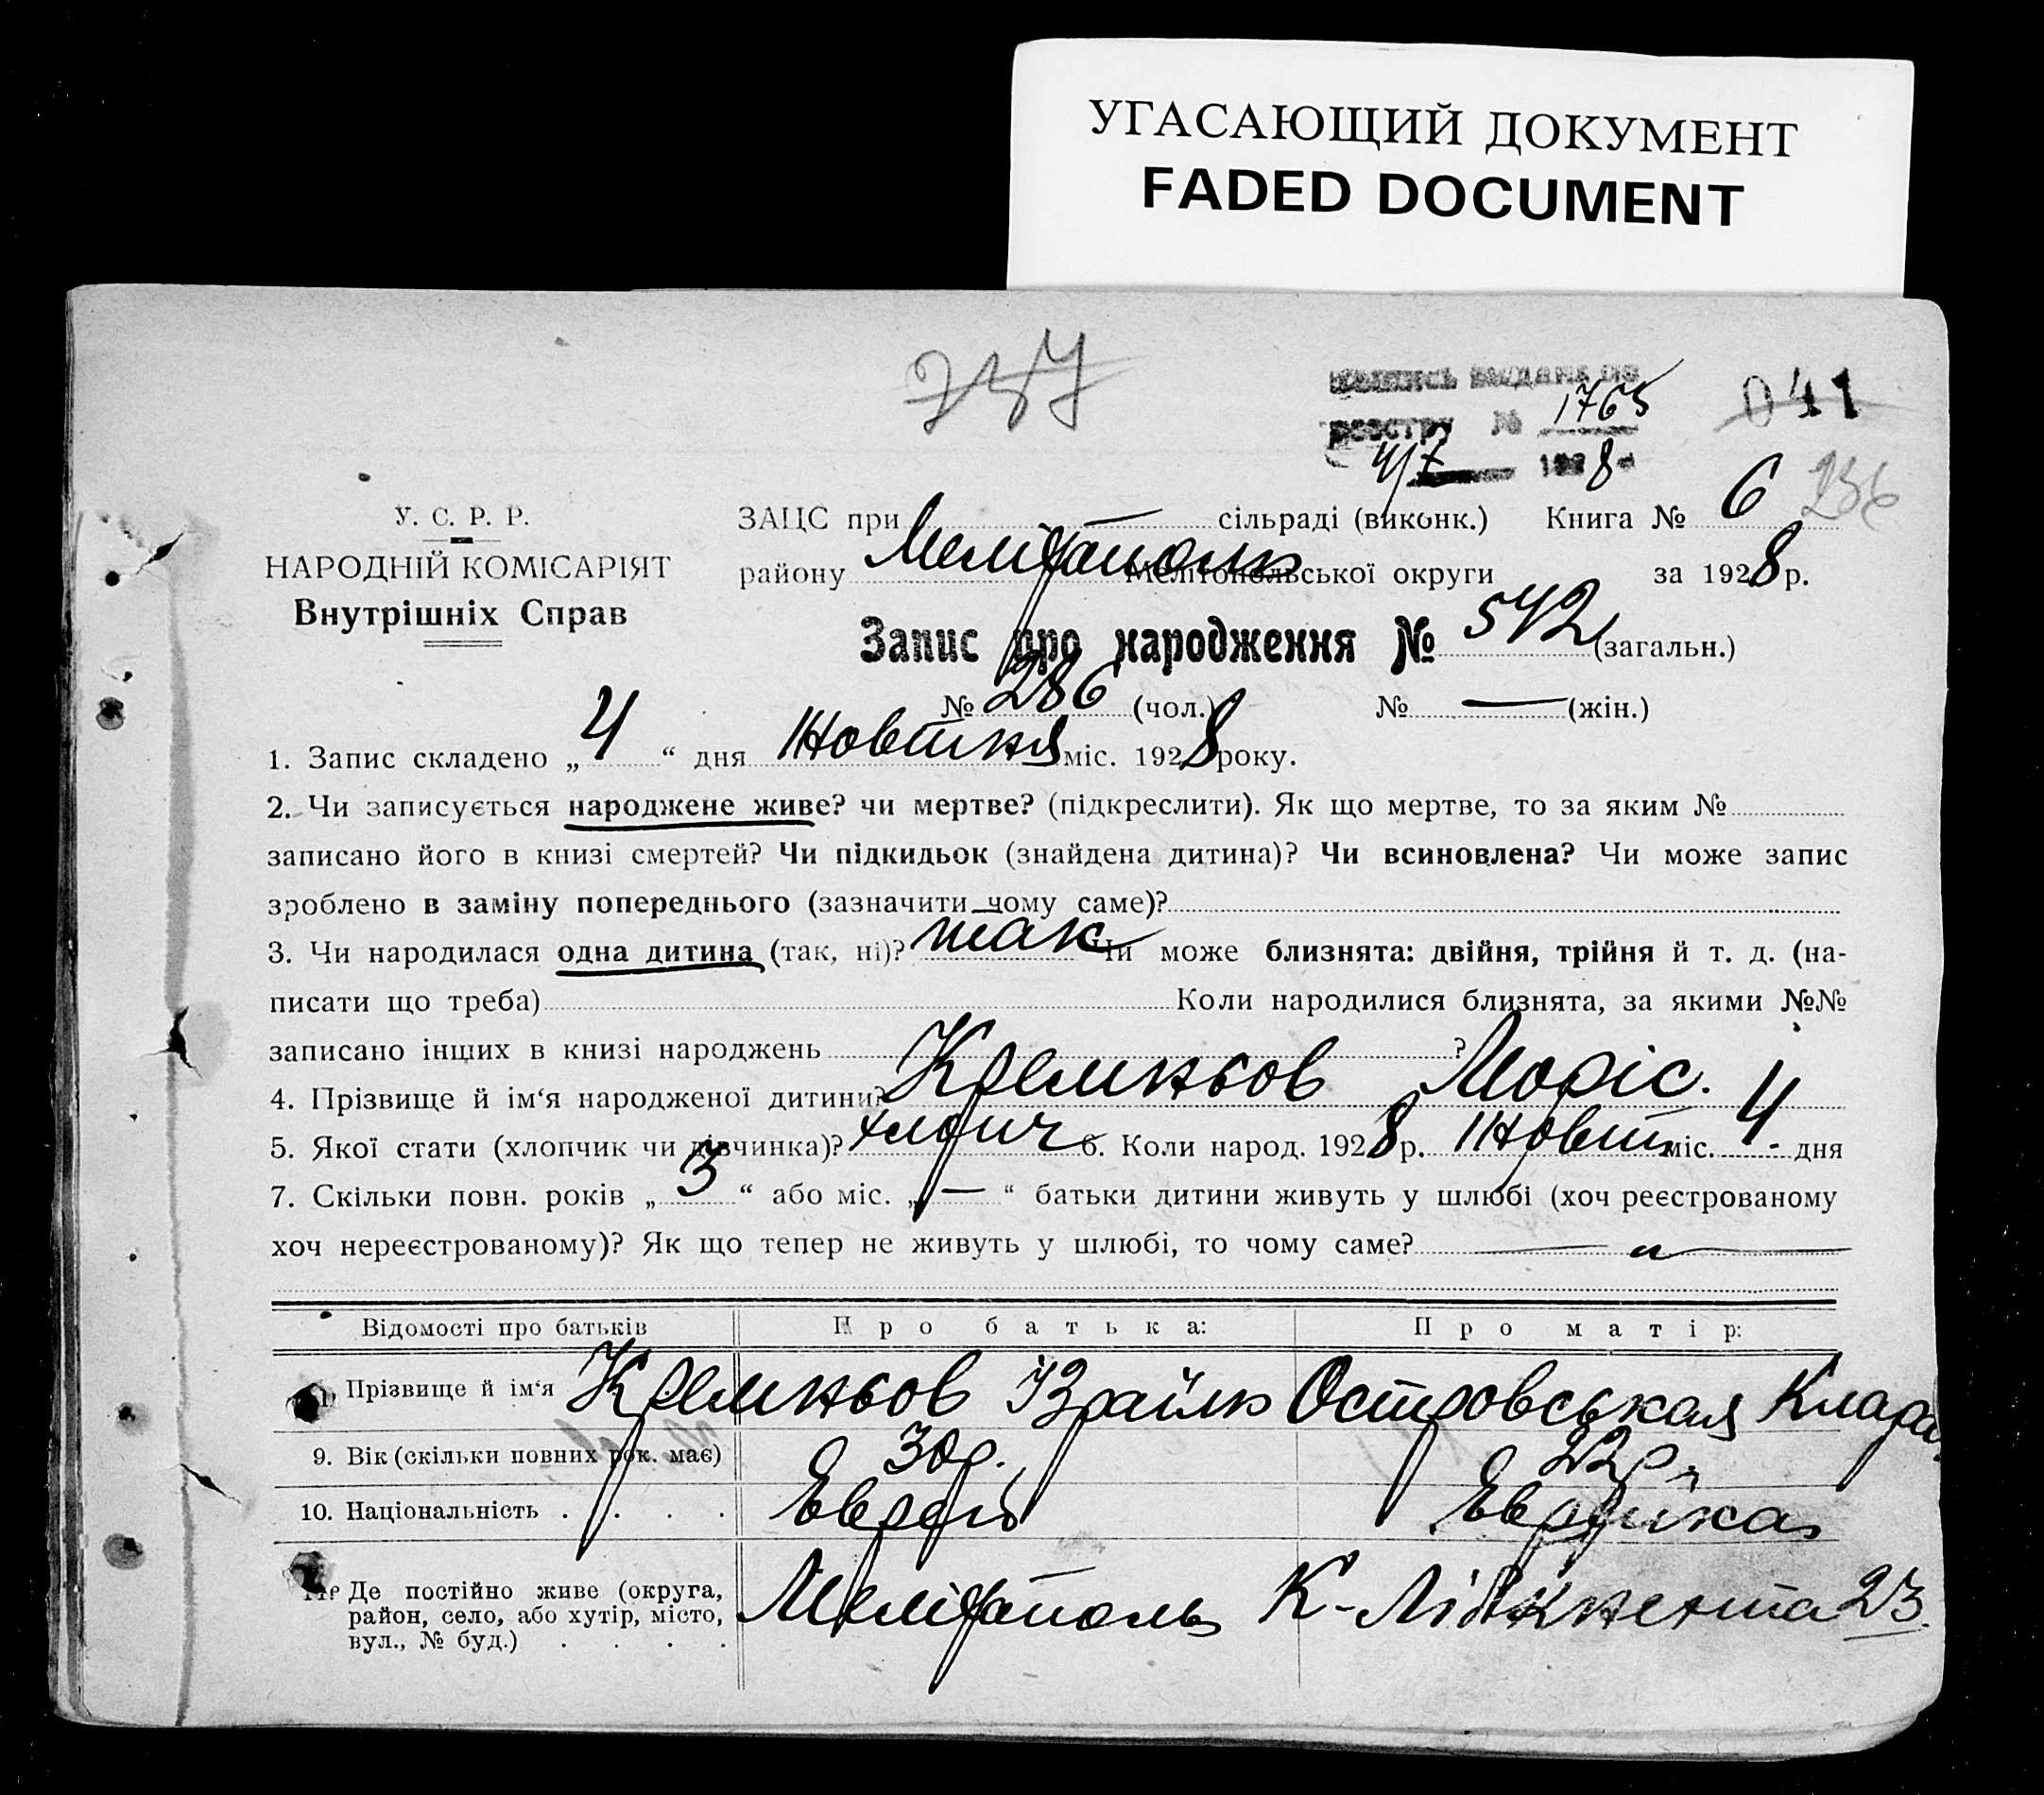 УГАСАЮЩИЙ ДОКУМЕНТ
FADED DOCUMENT
757
ВИДАНА ПО
реєстру № 1765
4/7 1928
041
У. С. Р. Р.
НАРОДНІЙ КОМІСАРІЯТ
Внутрішніх Справ
ЗАЦС при сільраді (виконк.) Книга № 6 236
району Мелітополь Мелітопольської округи за 1928 р.
Запис про народження № 542 (загальн.)
№ 286 (чол.) № — (жін.)
1. Запис складено „ 4 “ дня Жовтня міс. 1928 року.
2. Чи записується народжене живе? чи мертве? (підкреслити). Як що мертве, то за яким №
записано його в книзі смертей? Чи підкидьок (знайдена дитина)? Чи всиновлена? Чи може запис
зроблено в заміну попереднього (зазначити чому саме)?
3. Чи народилася одна дитина (так, ні)? так Чи може близнята: двійня, трійня й т. д. (на-
писати що треба) Коли народилися близнята, за якими №№
записано інших в книзі народжень ?
4. Прізвище й ім‘я народженої дитини? Кремньов Моріс.
5. Якої стати (хлопчик чи дівчинка)? хлопч 6. Коли народ. 1928 р. Жовт міс. 4 дня
7. Скільки повн. років „ 3 “ або міс. „ — “ батьки дитини живуть у шлюбі (хоч реєстрованому
хоч нереєстрованому)? Як що тепер не живуть у шлюбі, то чому саме?
Відомості про батьків Про батька: Про матір:
Прізвище й ім‘я Кремньов Ізраїль Островськая Клара
9. Вік (скільки повних рок. має) 30 р. 22 р.
10. Національність . . . . Еврей Еврейка
11. Де постійно живе (округа, Мелітополь К-Лібкнехта 23.
район, село, або хутір, місто,
вул., № буд.) . . . .